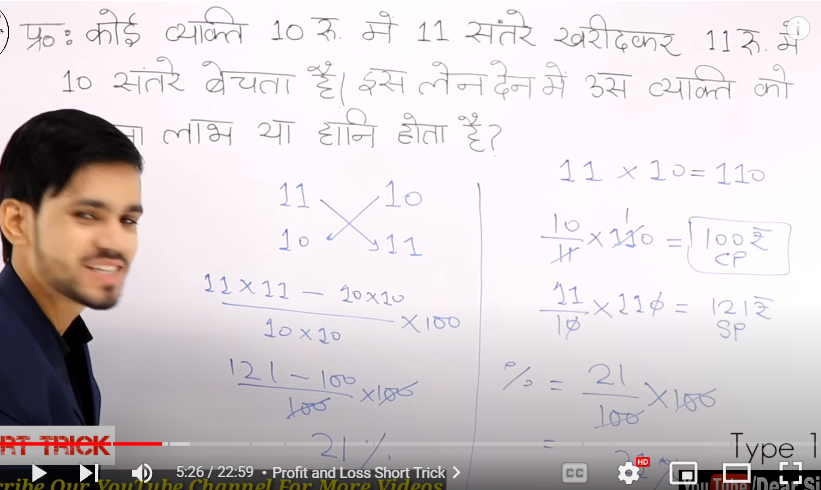 प्र०: कोई व्यक्ति 10 रु. में 11 संतरे खरीदकर 11 रु. में
10 संतरे बेचता है। इस लेन देन में उस व्यक्ति को
लाभ या हानि होता है?
11 10
10 11
11 × 11 - 10 × 10
10 × 10
× 100
121 - 100
100
× 100
21 %
11 × 10 = 110
10
11
× 110 = 100 ₹
1
CP
11
10
× 110 = 121 ₹
SP
% = 21
100
× 100
=
RT TRICK
Type 1
5:26 / 22:59 • Profit and Loss Short Trick
CC
HD
cribe Our YouTube Channel For More Videos
You Tube /Dear Si